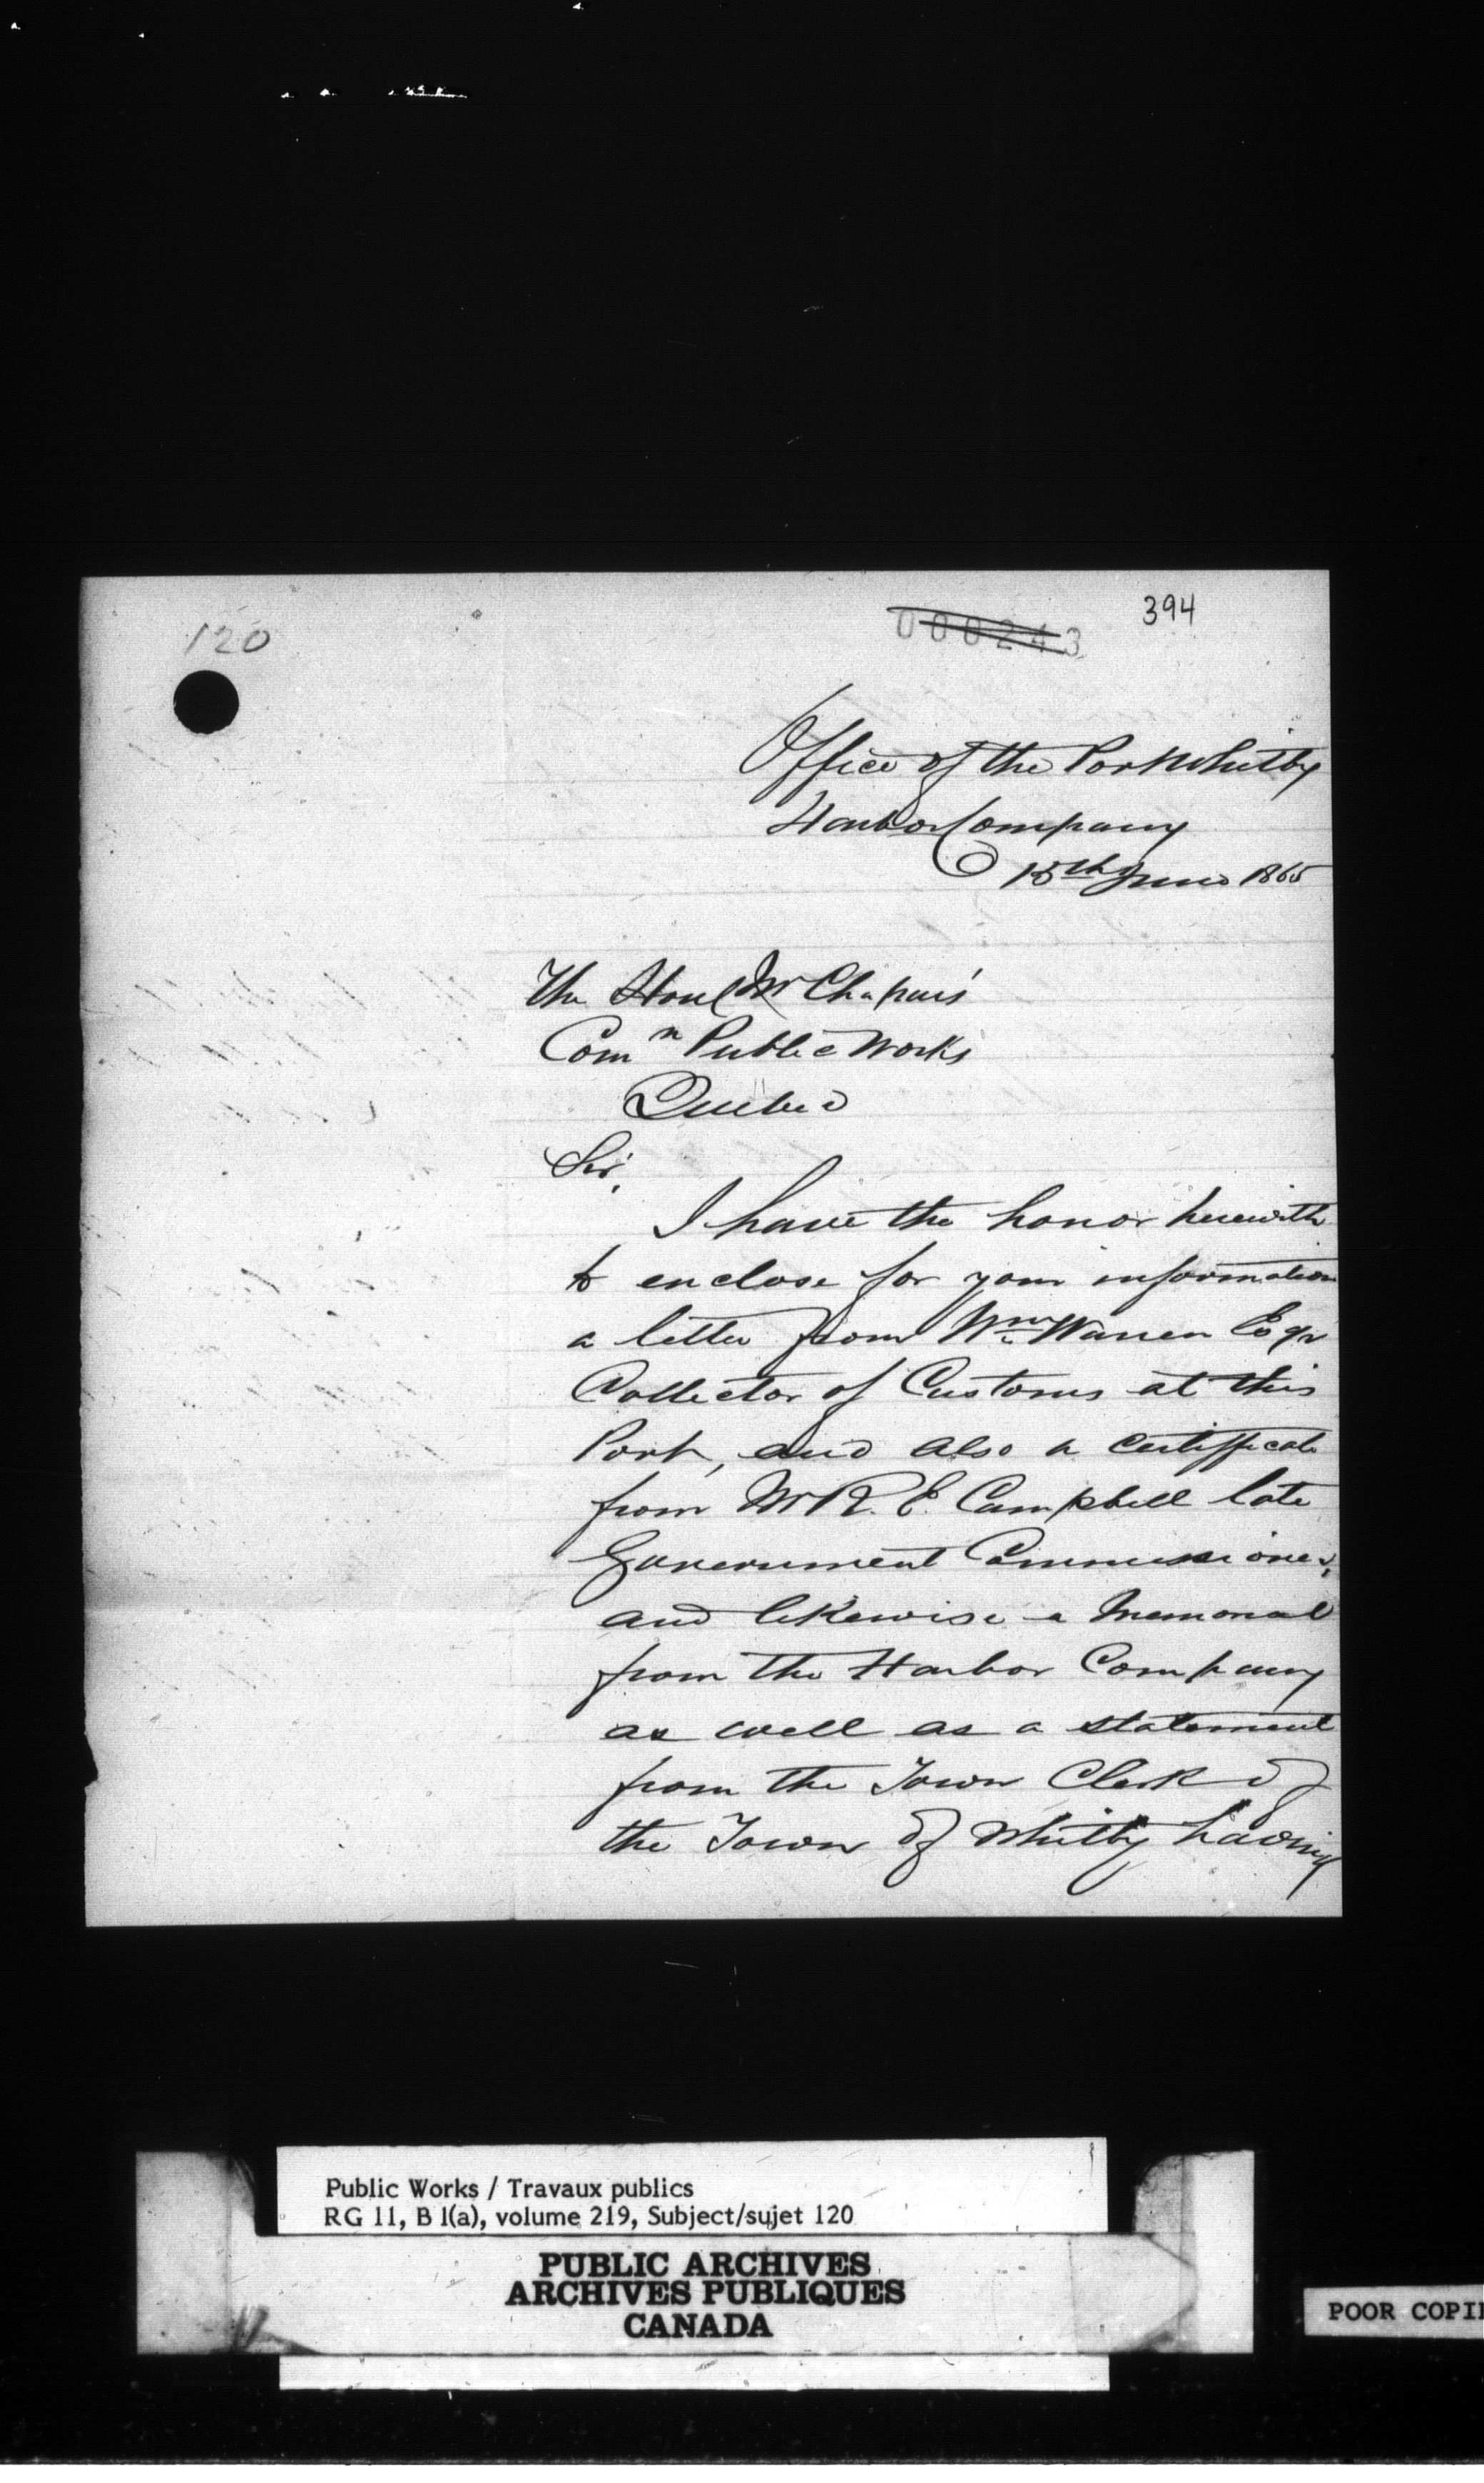 120
000243
394
Office of the Port Whitby
Harbor Company
15th June 1865
The Honl Mr Chapais
Comn Public Works
Quebec
Sir,
I have the honor herewith
to enclose for your information
a letter from Wm Warren Esqr
Collector of Customs at this
Port, and also a certificate
from Mr R. E. Campbell late
Government Commissioner,
and likewise a Memorial
from the Harbor Company
as well as a statement
from the Town Clerk of
the Town of Whitby having
Public Works / Travaux publics
RG 11, B 1(a), volume 219, Subject/sujet 120
PUBLIC ARCHIVES
ARCHIVES PUBLIQUES
CANADA
POOR COPI